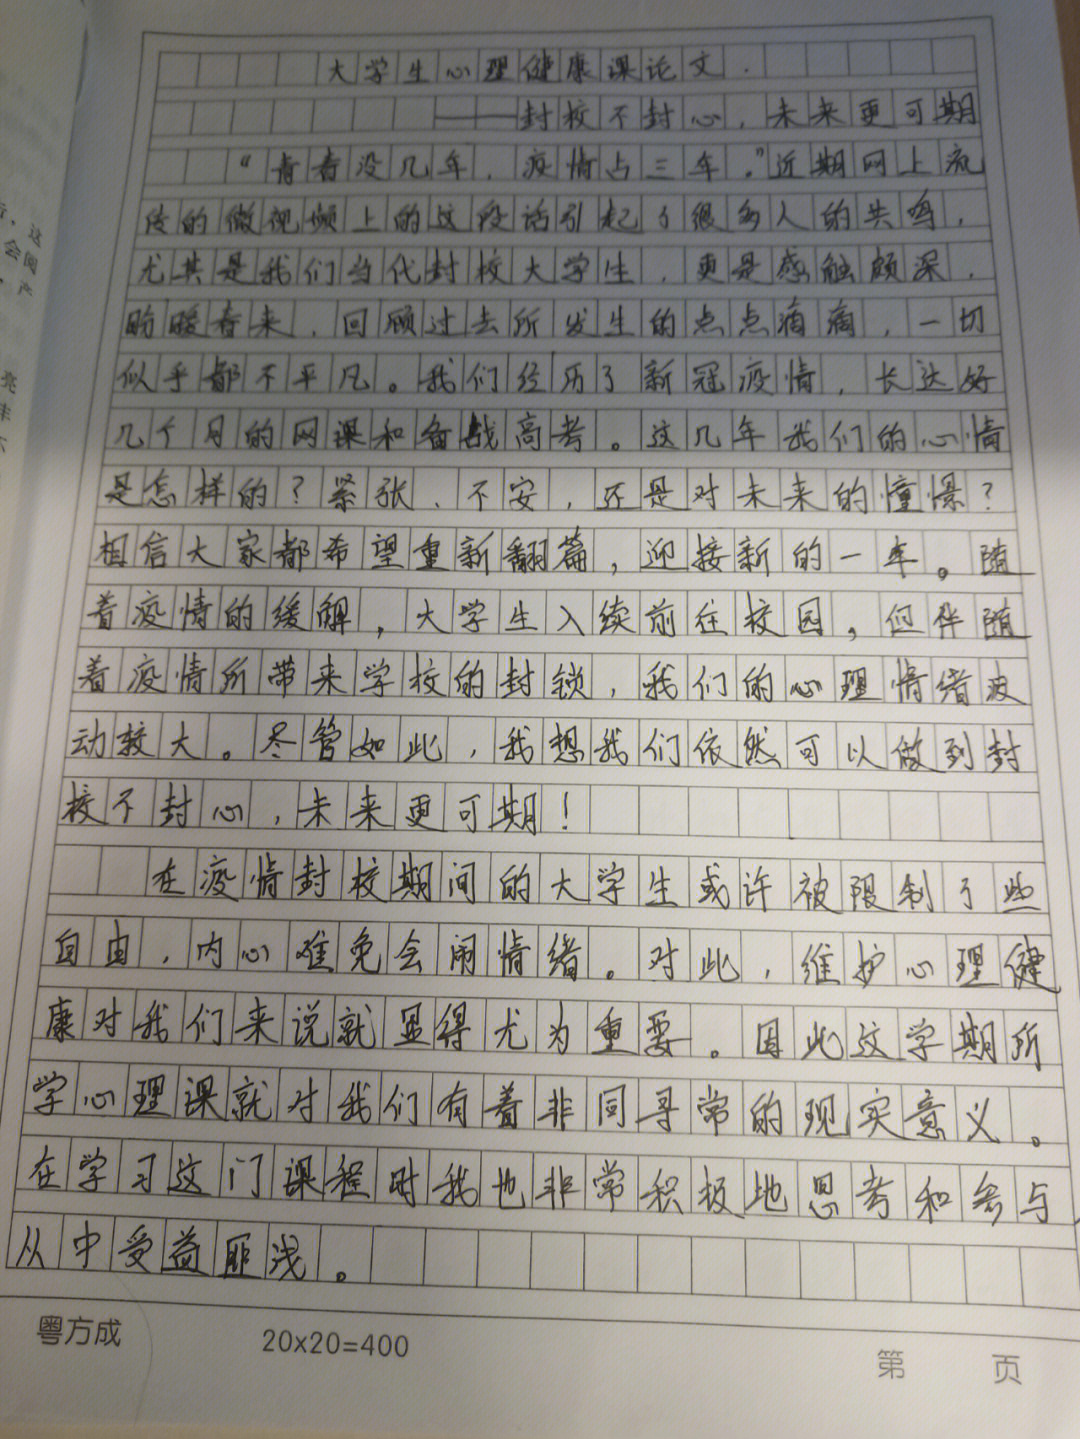 大学生心理健康课论文.
——封校不封心,未来更可期
“青春没几年,疫情占三年。”近期网上流
传的微视频上的这段话引起了很多人的共鸣,
尤其是我们当代封校大学生,更是感触颇深,
盼暖春来,回顾过去所发生的点点滴滴,一切
似乎都不平凡。我们经历了新冠疫情,长达好
几个月的网课和备战高考。这几年我们的心情
是怎样的?紧张、不安,还是对未来的憧憬?
相信大家都希望重新翻篇,迎接新的一年。随
着疫情的缓解,大学生入续前往校园,但伴随
着疫情所带来学校的封锁,我们的心理情绪波
动较大。尽管如此,我想我们依然可以做到封
校不封心,未来更可期!
在疫情封校期间的大学生或许被限制了些
自由,内心难免会闹情绪。对此,维护心理健
康对我们来说就显得尤为重要。因此这学期所
学心理课就对我们有着非同寻常的现实意义。
在学习这门课程时我也非常积极地思考和参与,
从中受益匪浅。
粤方成 20x20=400 第 页